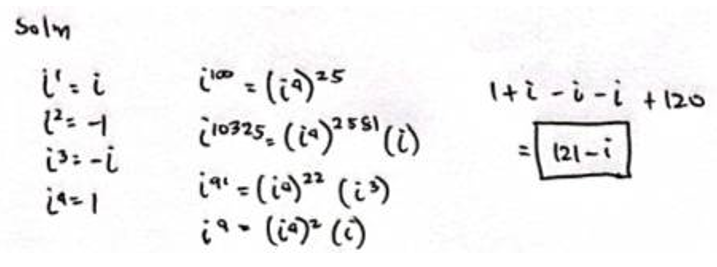 Soln
i¹ = i
i² = -1
i³ = -i
i⁴ = 1
i¹⁰⁰ = (i⁴)²⁵
i¹⁰³²⁵ = (i⁴)²⁵⁸¹ (i)
i⁹¹ = (i⁴)²² (i³)
i⁹ = (i⁴)² (i)
1 + i - i - i + 120
= 121 - i